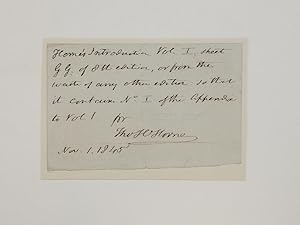 Horne's Introduction Vol. I, sheet
G G; of 8th edition, or from the
waste of any other edition so that
it contain No. I of the Appendix
to Vol. I for
Tho. H. Horne
Nov. 1. 1845